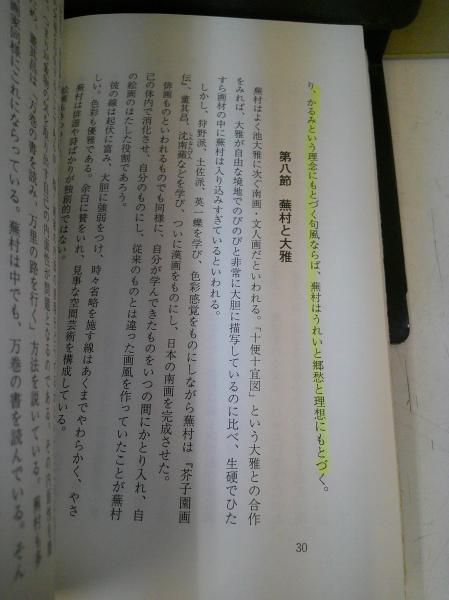 り、かるみという理念にもとづく句風ならば、蕪村はうれいと郷愁と理想にもとづく。
第八節　蕪村と大雅
蕪村はよく池大雅に次ぐ南画・文人画だといわれる。「十便十宜図」という大雅との合作
をみれば、大雅が自由な境地でのびのびと非常に大胆に描写しているのに比べ、生硬でひた
すら画材の中に蕪村は入り込みすぎているといわれる。
しかし、狩野派、土佐派、英一蝶を学び、色彩感覚をものにしながら蕪村は『芥子園画
伝』、董其昌、沈南蘋などを学び、ついに漢画をものにし、日本の南画を完成させた。
俳画ものといわれるものでも同様に、自分が学んできたものをいつの間にかとり入れ、自
己の体内で消化させ、自分のものにし、従来のものとは違った画風を作っていたことが蕪村
の絵画のはたした役割であろう。
彼の線は起伏に富み、大胆に強弱をつけ、時々省略を施す線はあくまでやわらかく、やさ
しい。色彩も優雅である。余白に賛をいれ、見事な空間芸術を構成している。
蕪村は俳諧や詩ばかりが独創的ではない。
董其昌は、「万巻の書を読み、万里の路を行く」方法を説いている。蕪村も
画家同様にこれにならっている。蕪村は中でも、万巻の書を読んでいる。そん
30